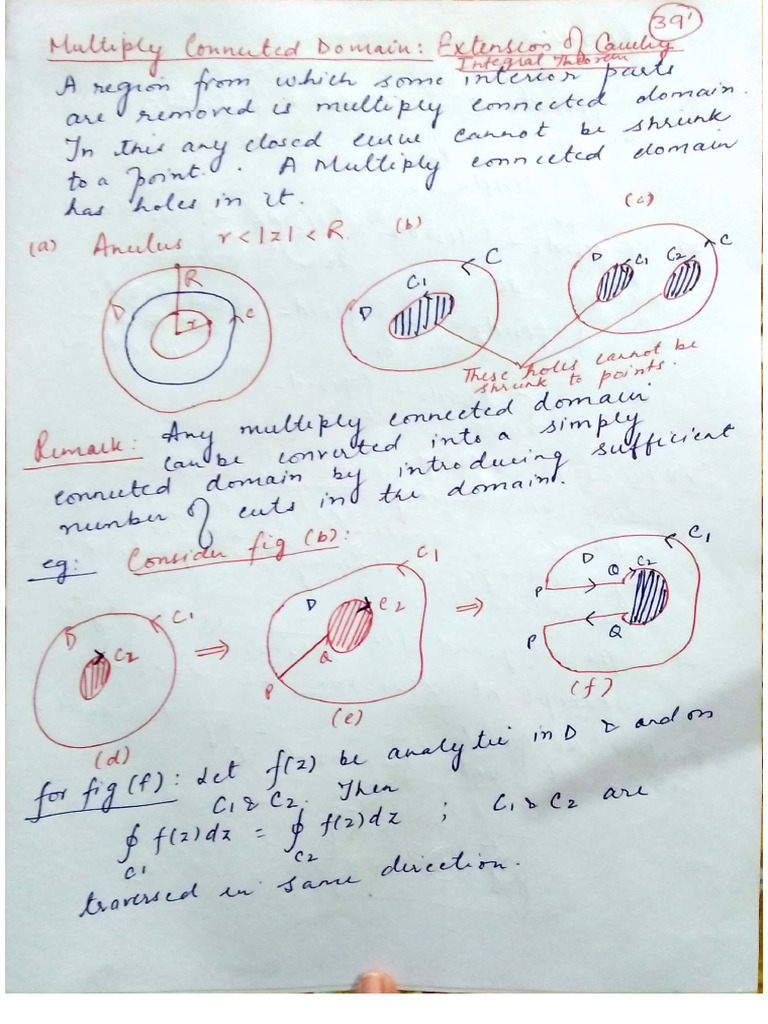 39'
Multiply Connected Domain: Extension of Cauchy
Integral Theorem
A region from which some interior parts
are removed is multiply connected domain.
In this any closed curve cannot be shrunk
to a point. A Multiply connected domain
has holes in it.
(a) Anulus r<|z|<R (b) (c)
R D r C
C C1 D
D C1 C2 C
These holes cannot be
shrunk to points.
Remark: Any multiply connected domain
can be converted into a simply
connected domain by introducing sufficient
number of cuts in the domain.
eg: Consider fig (b):
D C1 C2
⇒
D C1 C2 Q P
⇒
D C1 P Q C2 P Q
(d) (e) (f)
for fig (f): Let f(z) be analytic in D & and on
C1 & C2. Then
∮ f(z)dz = ∮ f(z)dz ; C1 & C2 are
C1 C2
traversed in same direction.